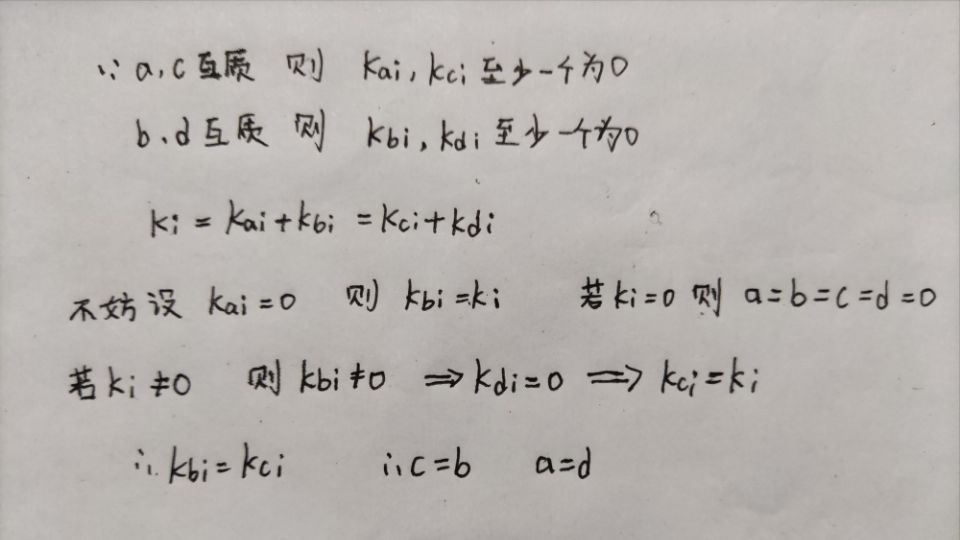 ∵ a,c互质 则 kai,kci至少一个为0
b、d互质 则 kbi,kdi至少一个为0
ki=kai+kbi=kci+kdi
不妨设 kai=0 则 kbi=ki 若ki=0则 a=b=c=d=0
若ki≠0 则kbi≠0 ⇒kdi=0 ⇒ kci=ki
∴kbi=kci ∴c=b a=d